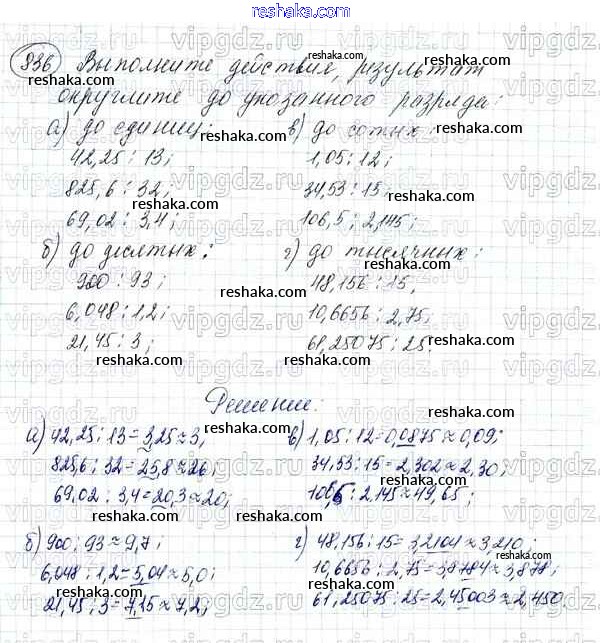 reshaka.com
836) Выполните действия, результат
округлите до указанного разряда:
а) до единиц:
42,25 : 13;
825,6 : 32;
69,02 : 3,4;
б) до десятых:
900 : 93;
6,048 : 1,2;
21,45 : 3;
в) до сотых:
1,05 : 12;
34,53 : 15;
106,5 : 2,145;
г) до тысячных:
48,156 : 15,
10,6656 : 2,75;
61,25075 : 25.
Решение:
а) 42,25 : 13 = 3,25 ≈ 3;
825,6 : 32 = 25,8 ≈ 26;
69,02 : 3,4 = 20,3 ≈ 20;
б) 900 : 93 ≈ 9,7;
6,048 : 1,2 = 5,04 ≈ 5,0;
21,45 : 3 = 7,15 ≈ 7,2;
в) 1,05 : 12 = 0,0875 ≈ 0,09;
34,53 : 15 = 2,302 ≈ 2,30;
106,5 : 2,145 ≈ 49,65;
г) 48,156 : 15 = 3,2104 ≈ 3,210;
10,6656 : 2,75 = 3,8784 ≈ 3,878;
61,25075 : 25 = 2,45003 ≈ 2,450.
vipgdz.ru
reshaka.com